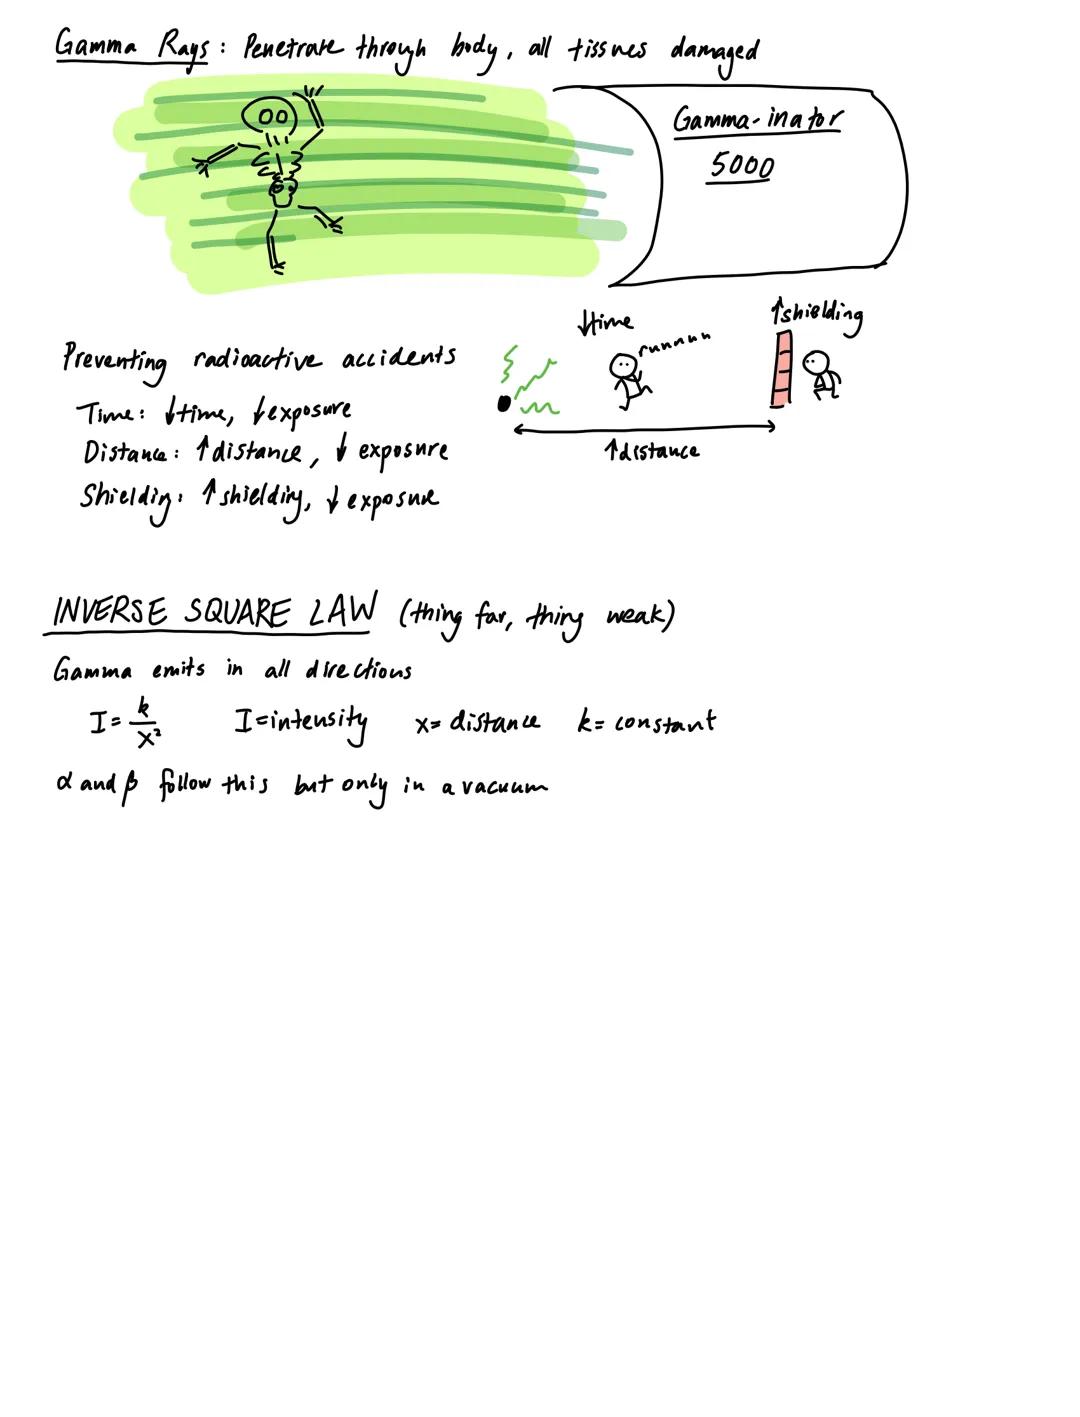 Gamma Rays: Penetrate through body, all tissues damaged
Gamma-inator
5000
↓time
↑shielding
runnnnn
Preventing radioactive accidents
Time: ↓time, ↓exposure
Distance: ↑distance, ↓ exposure
↑distance
Shielding: ↑shielding, ↓exposure
INVERSE SQUARE LAW (thing far, thing weak)
Gamma emits in all directions
I = k/x² I=intensity x= distance k= constant
α and β follow this but only in a vacuum